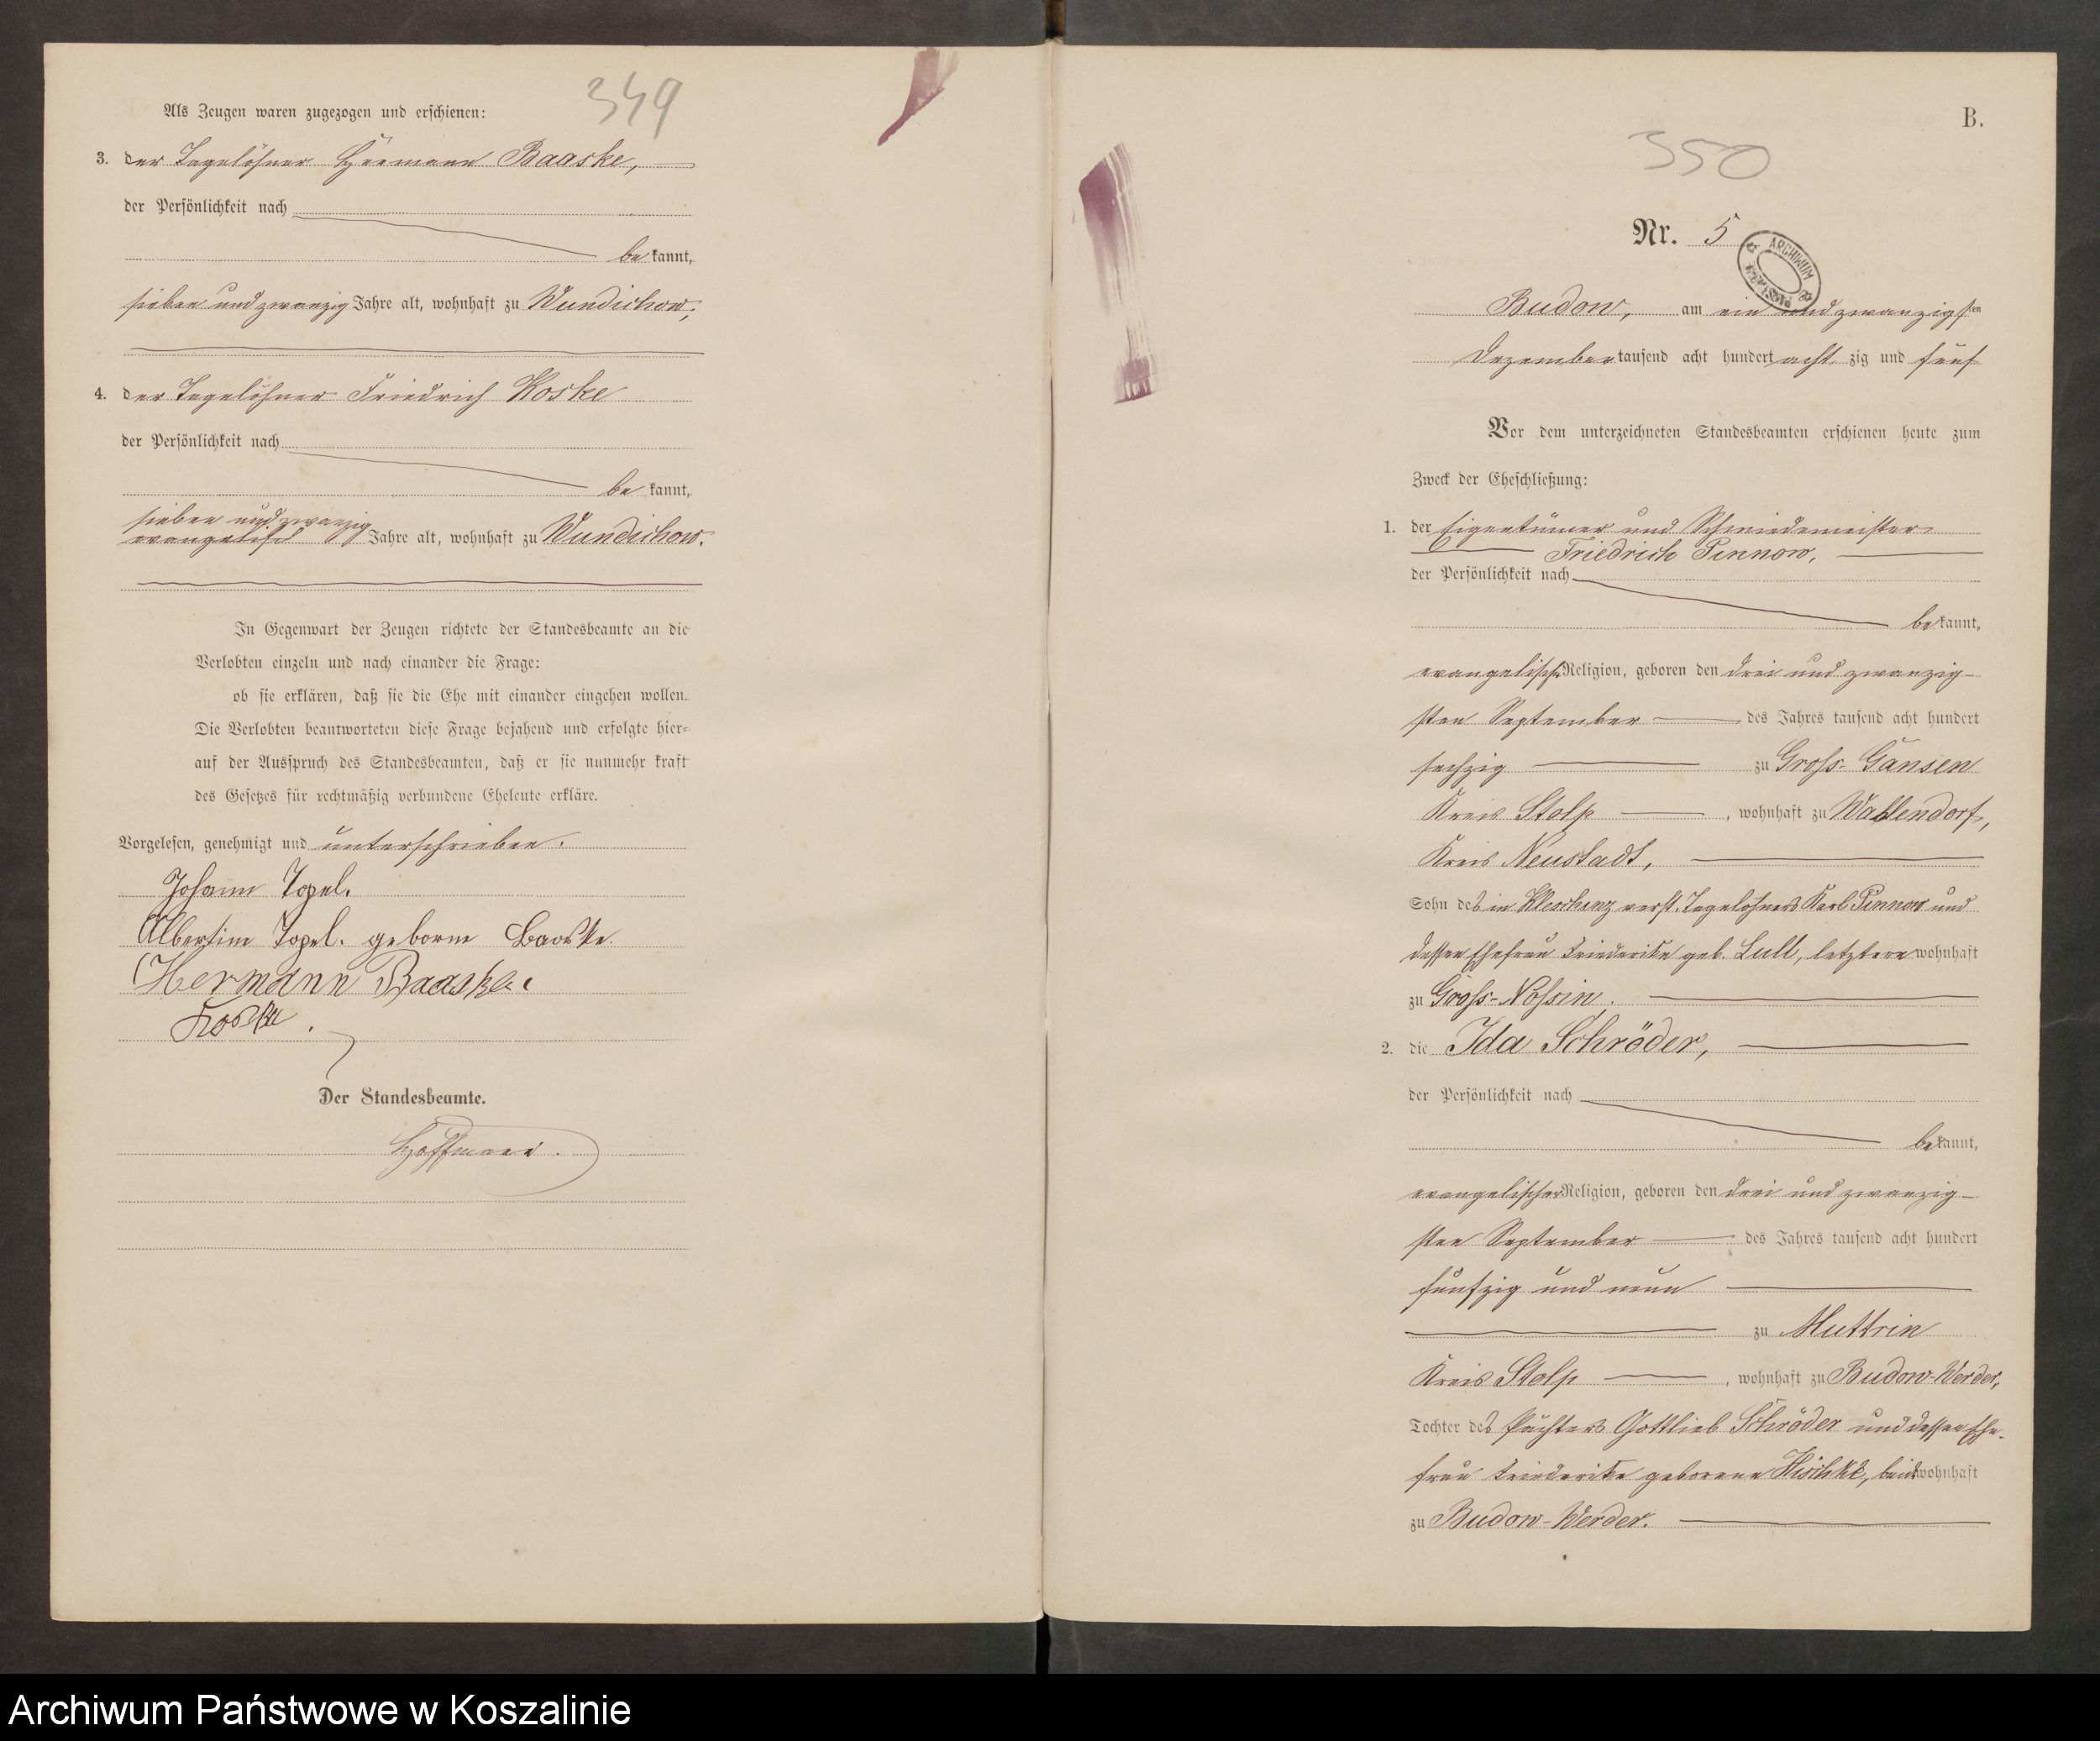 349
Als Zeugen waren zugezogen und erschienen:
3. der Tagelöhner Hermann Baaske,
der Persönlichkeit nach
bekannt,
sieben und zwanzig Jahre alt, wohnhaft zu Wundichow,
4. der Tagelöhner Friedrich Koske
der Persönlichkeit nach
bekannt,
sieben und zwanzig
Jahre alt, wohnhaft zu Wundichow.
In Gegenwart der Zeugen richtete der Standesbeamte an die
Verlobten einzeln und nach einander die Frage:
ob sie erklären, daß sie die Ehe mit einander eingehen wollen.
Die Verlobten beantworteten diese Frage bejahend und erfolgte hier-
auf der Ausspruch des Standesbeamten, daß er sie nunmehr kraft
des Gesetzes für rechtmäßig verbundene Eheleute erkläre.
Vorgelesen, genehmigt und unterschrieben.
Johann Topel.
Albertine Topel. geborne Baaske
Hermann Baaske.
Koske.
Der Standesbeamte.
Hoffmann.
B.
350
Nr. 5
ARCHIWUM
Budow, am ein und zwanzigsten
Dezember tausend acht hundert achtzig und fünf
Vor dem unterzeichneten Standesbeamten erschienen heute zum
Zweck der Eheschließung:
1. der Eigentümer und Schmiedemeister
Friedrich Pinnow,
der Persönlichkeit nach
bekannt,
evangelischer Religion, geboren den drei und zwanzig-
sten September des Jahres tausend acht hundert
sechzig zu Gross-Gansen
Kreis Stolp, wohnhaft zu Wahlendorf,
Kreis Neustadt,
Sohn des in Kleschinz verst. Tagelöhners Karl Pinnow und
dessen Ehefrau Friederike geb. Lull, letztere wohnhaft
zu Gross-Nossin.
2. die Ida Schröder,
der Persönlichkeit nach
bekannt,
evangelischer Religion, geboren den drei und zwanzig-
sten September des Jahres tausend acht hundert
fünfzig und neun
zu Muttrin
Kreis Stolp, wohnhaft zu Budow-Werder,
Tochter des Pächters Gottlieb Schröder und dessen Ehe-
frau Friederike geborene Hischke, beide wohnhaft
zu Budow-Werder.
Archiwum Państwowe w Koszalinie